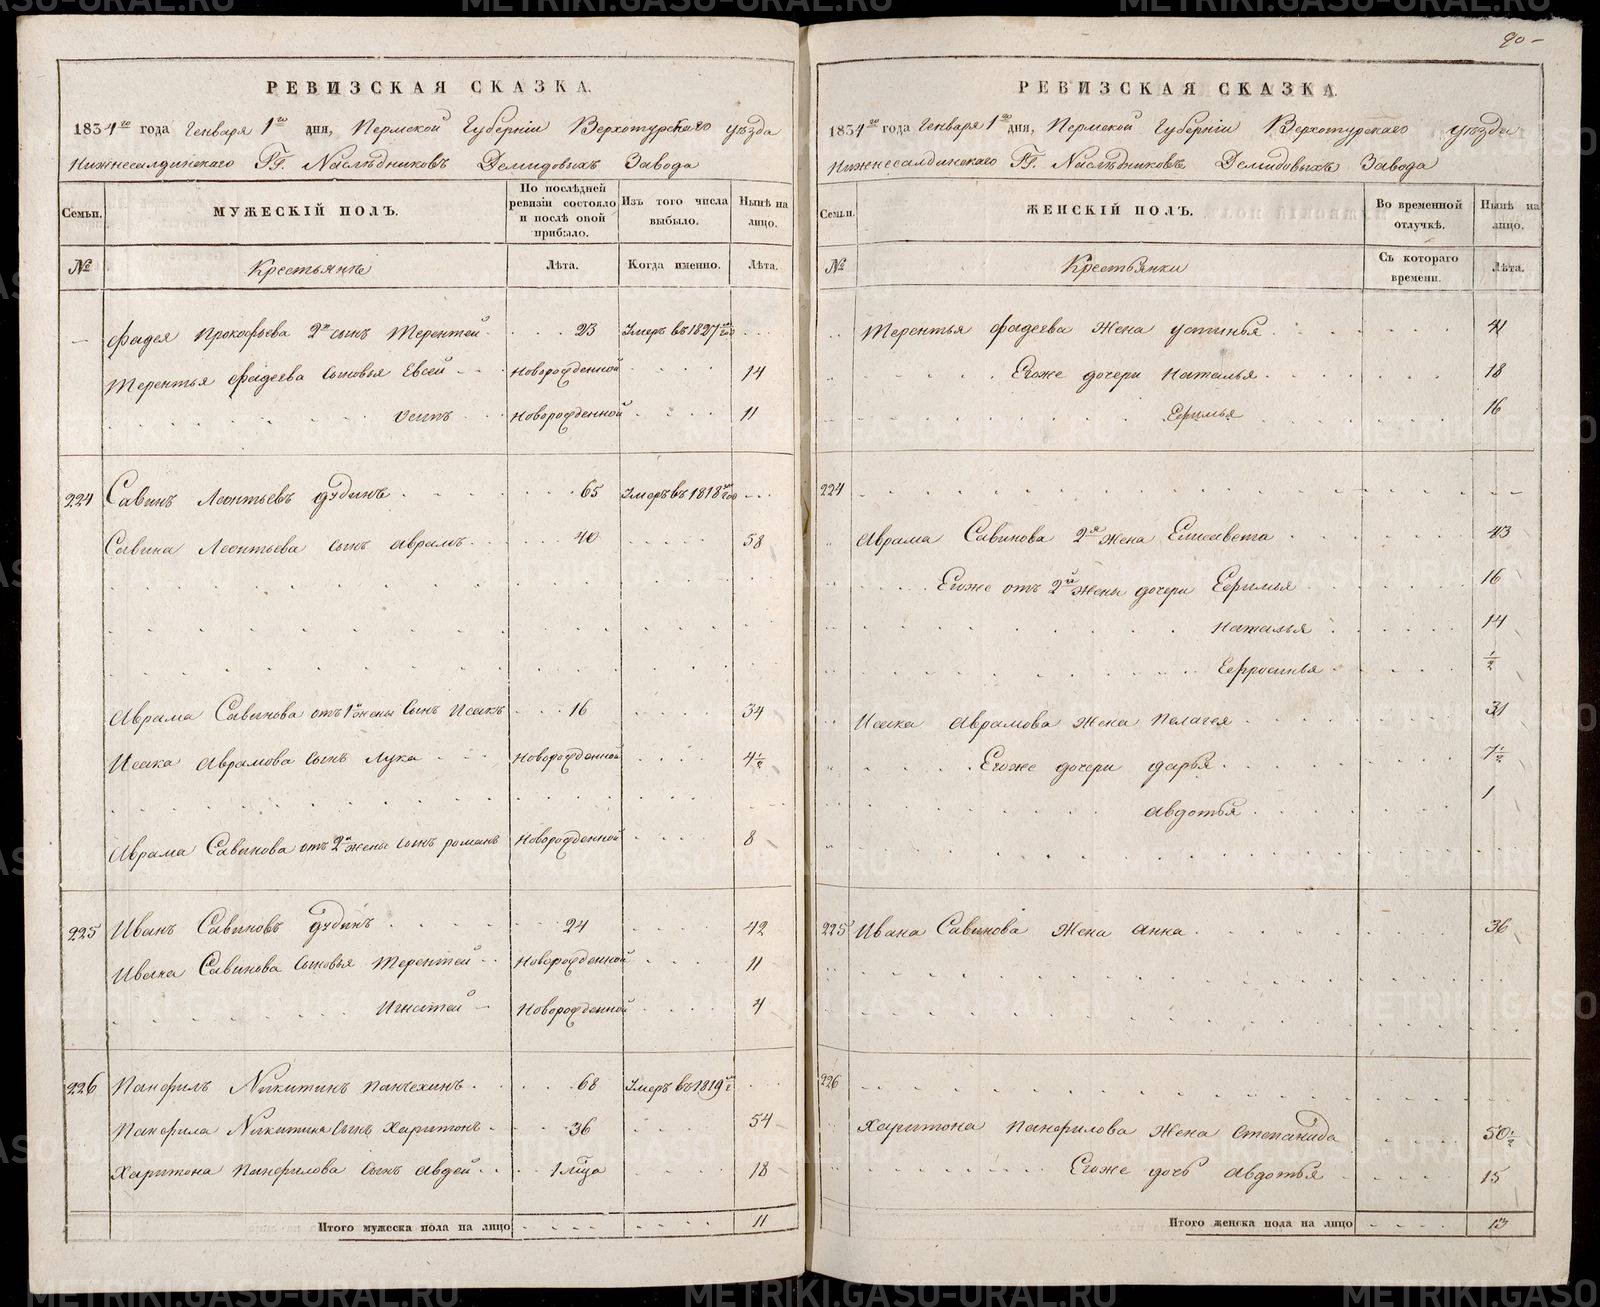 РЕВИЗСКАЯ СКАЗКА.
1834го года Генваря 1го дня, Пермской Губерніи Верхотурскаго уѣзда
Нижнесалдинскаго Гг. Наслѣдниковъ Демидовыхъ Завода
Семьи. МУЖЕСКІЙ ПОЛЪ. По послѣдней ревизіи состояло и послѣ оной прибыло. Изъ того числа выбыло. Нынѣ на лицо.
№ Крестьяне Лѣта. Когда именно. Лѣта.
— Фадея Прокофьева 2й сынъ Терентей 23 Умеръ въ 1827м год
Терентья Фадеева сыновья Евсей Новорожденной 14
Осипъ Новорожденной 11
224 Савинъ Леонтьевъ Дудинъ 65 Умеръ въ 1818м год
Савина Леонтьева сынъ Аврамъ 40 58
Аврама Савинова отъ 1й жены сынъ Исакъ 16 34
Исака Аврамова сынъ Лука Новорожденной 4½
Аврама Савинова отъ 2й жены сынъ Романъ Новорожденной 8
225 Иванъ Савиновъ Дудинъ 24 42
Ивана Савинова сыновья Терентей Новорожденной 11
Игнатей Новорожденной 4
226 Панфилъ Никитинъ 68 Умеръ въ 1819м г
Панфила Никитина сынъ Харитонъ 36 54
Харитона Панфилова сынъ Авдей 18
Итого мужеска пола на лицо 11
90 —
РЕВИЗСКАЯ СКАЗКА.
1834го года Генваря 1го дня, Пермской Губерніи Верхотурскаго уѣзда
Нижнесалдинскаго Гг. Наслѣдниковъ Демидовыхъ Завода
Семьи. ЖЕНСКІЙ ПОЛЪ. Во временной отлучкѣ. Нынѣ на лицо.
№ Крестьянки Съ котораго времени. Лѣта.
Терентья Фадеева жена Устинья 41
Егоже дочери Наталья 18
Ефимья 16
224
Аврама Савинова 2я жена Елисавета 43
Егоже отъ 2й жены дочери Ефимья 16
Наталья 14
Ефросинья ½
Исака Аврамова жена Пелагея 31
Егоже дочери Дарья 7½
Авдотья 1
225 Ивана Савинова жена Анна 36
226
Харитона Панфилова жена Степанида 50½
Егоже дочь Авдотья 15
Итого женска пола на лицо 13
METRIKI.GASO-URAL.RU